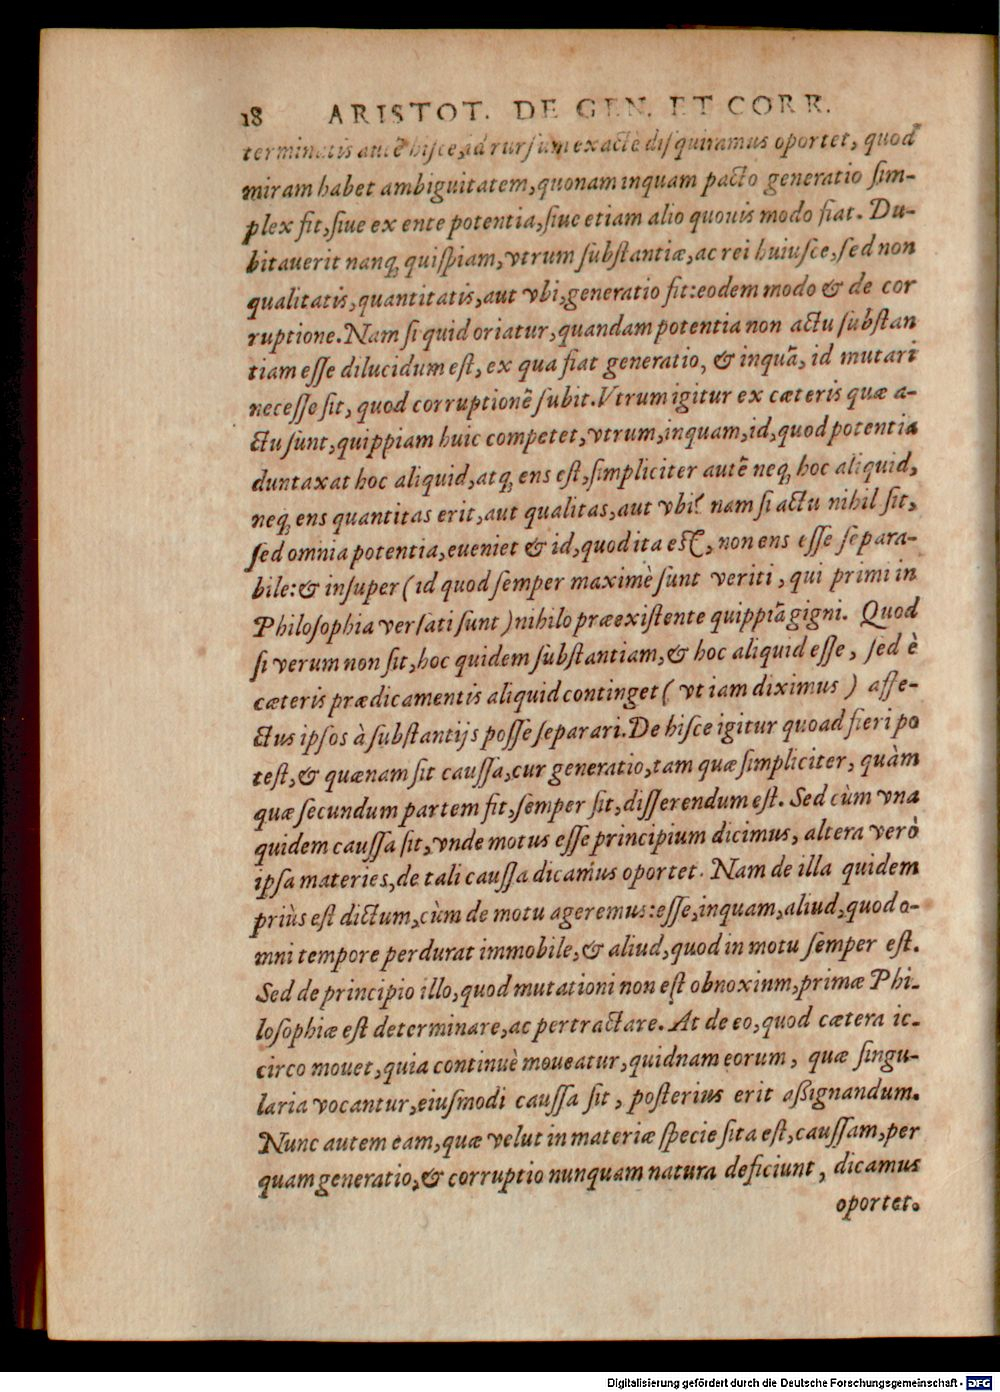 18 ARISTOT. DE GEN. ET CORR.
terminatis autē hisce, id rursum exactè disquiramus oportet, quod
miram habet ambiguitatem, quonam inquam pacto generatio sim-
plex fit, siue ex ente potentia, siue etiam alio quouis modo fiat. Du-
bitauerit nanq; quispiam, vtrum substantiæ, ac rei huiusce, sed non
qualitatis, quantitatis, aut vbi, generatio fit: eodem modo & de cor
ruptione. Nam si quid oriatur, quandam potentia non actu substan
tiam esse dilucidum est, ex qua fiat generatio, & inquā, id mutari
necesse sit, quod corruptionē subit. Vtrum igitur ex cæteris quæ a-
ctu sunt, quippiam huic competet, vtrum, inquam, id, quod potentia
duntaxat hoc aliquid, atq; ens est, simpliciter autē neq; hoc aliquid,
neq; ens quantitas erit, aut qualitas, aut vbi? nam si actu nihil sit,
sed omnia potentia, eueniet & id, quod ita est, non ens esse separa-
bile: & insuper (id quod semper maximè sunt veriti, qui primi in
Philosophia versati sunt) nihilo præexistente quippiā gigni. Quod
si verum non sit, hoc quidem substantiam, & hoc aliquid esse, sed è
cæteris prædicamentis aliquid continget (vt iam diximus) affe-
ctus ipsos à substantijs posse separari. De hisce igitur quoad fieri po
test, & quænam sit caussa, cur generatio, tam quæ simpliciter, quàm
quæ secundum partem fit, semper sit, disserendum est. Sed cùm vna
quidem caussa sit, vnde motus esse principium dicimus, altera verò
ipsa materies, de tali caussa dicamus oportet. Nam de illa quidem
priùs est dictum, cùm de motu ageremus: esse, inquam, aliud, quod o-
mni tempore perdurat immobile, & aliud, quod in motu semper est.
Sed de principio illo, quod mutationi non est obnoxium, primæ Phi-
losophiæ est determinare, ac pertractare. At de eo, quod cætera ic-
circo mouet, quia continuè moueatur, quidnam eorum, quæ singu-
laria vocantur, eiusmodi caussa sit, posterius erit aßignandum.
Nunc autem eam, quæ velut in materiæ specie sita est, caussam, per
quam generatio, & corruptio nunquam natura deficiunt, dicamus
oportet.
Digitalisierung gefördert durch die Deutsche Forschungsgemeinschaft - DFG